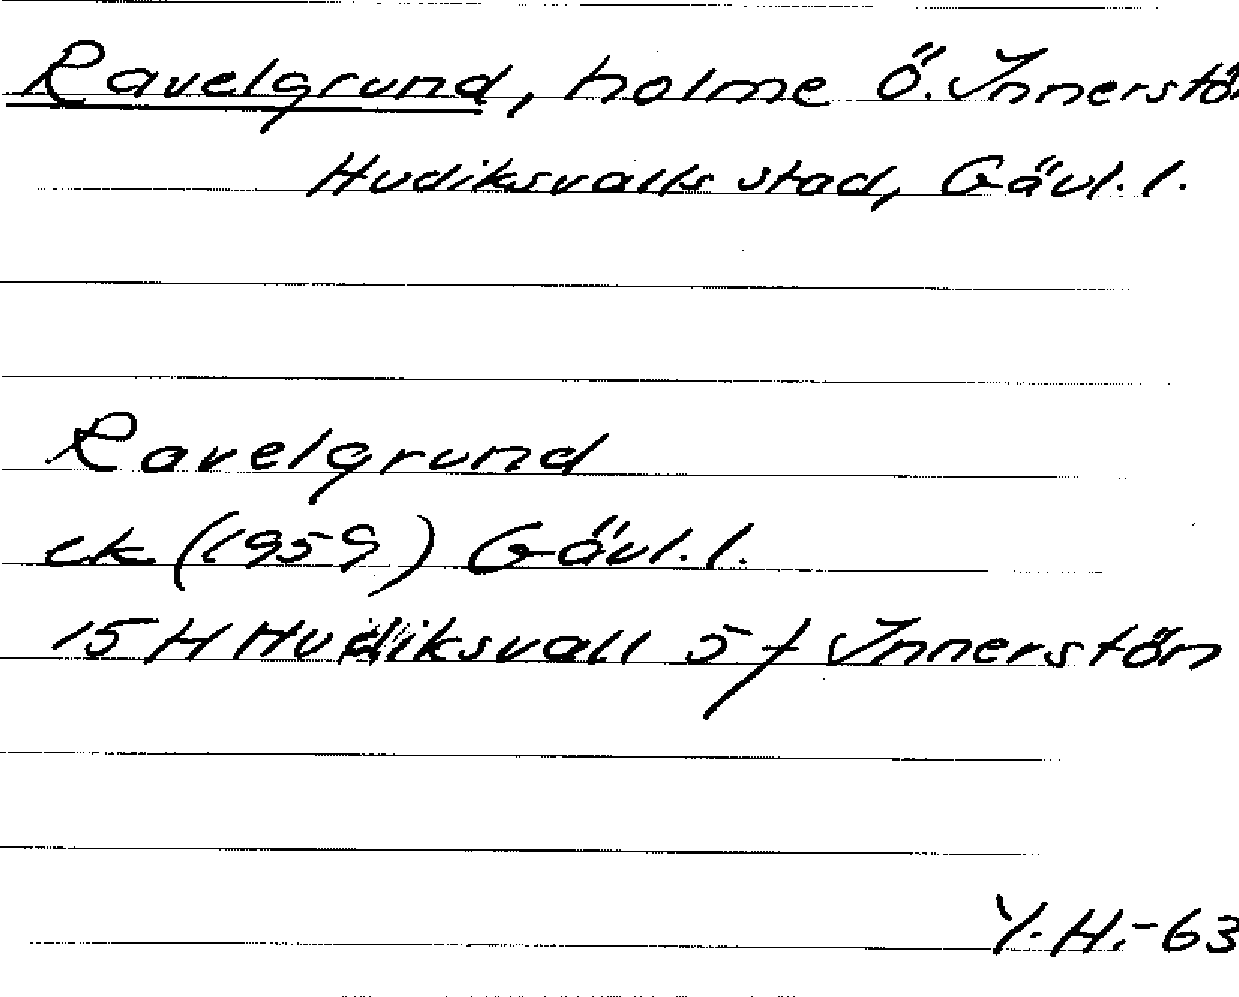 Ravelgrund, holme Ö. Innerstön
Hudiksvalls stad, Gävl. l.
Ravelgrund
ek (1959) Gävl. l.
15 H Hudiksvall 5 f Innerstön
Y. H. - 63